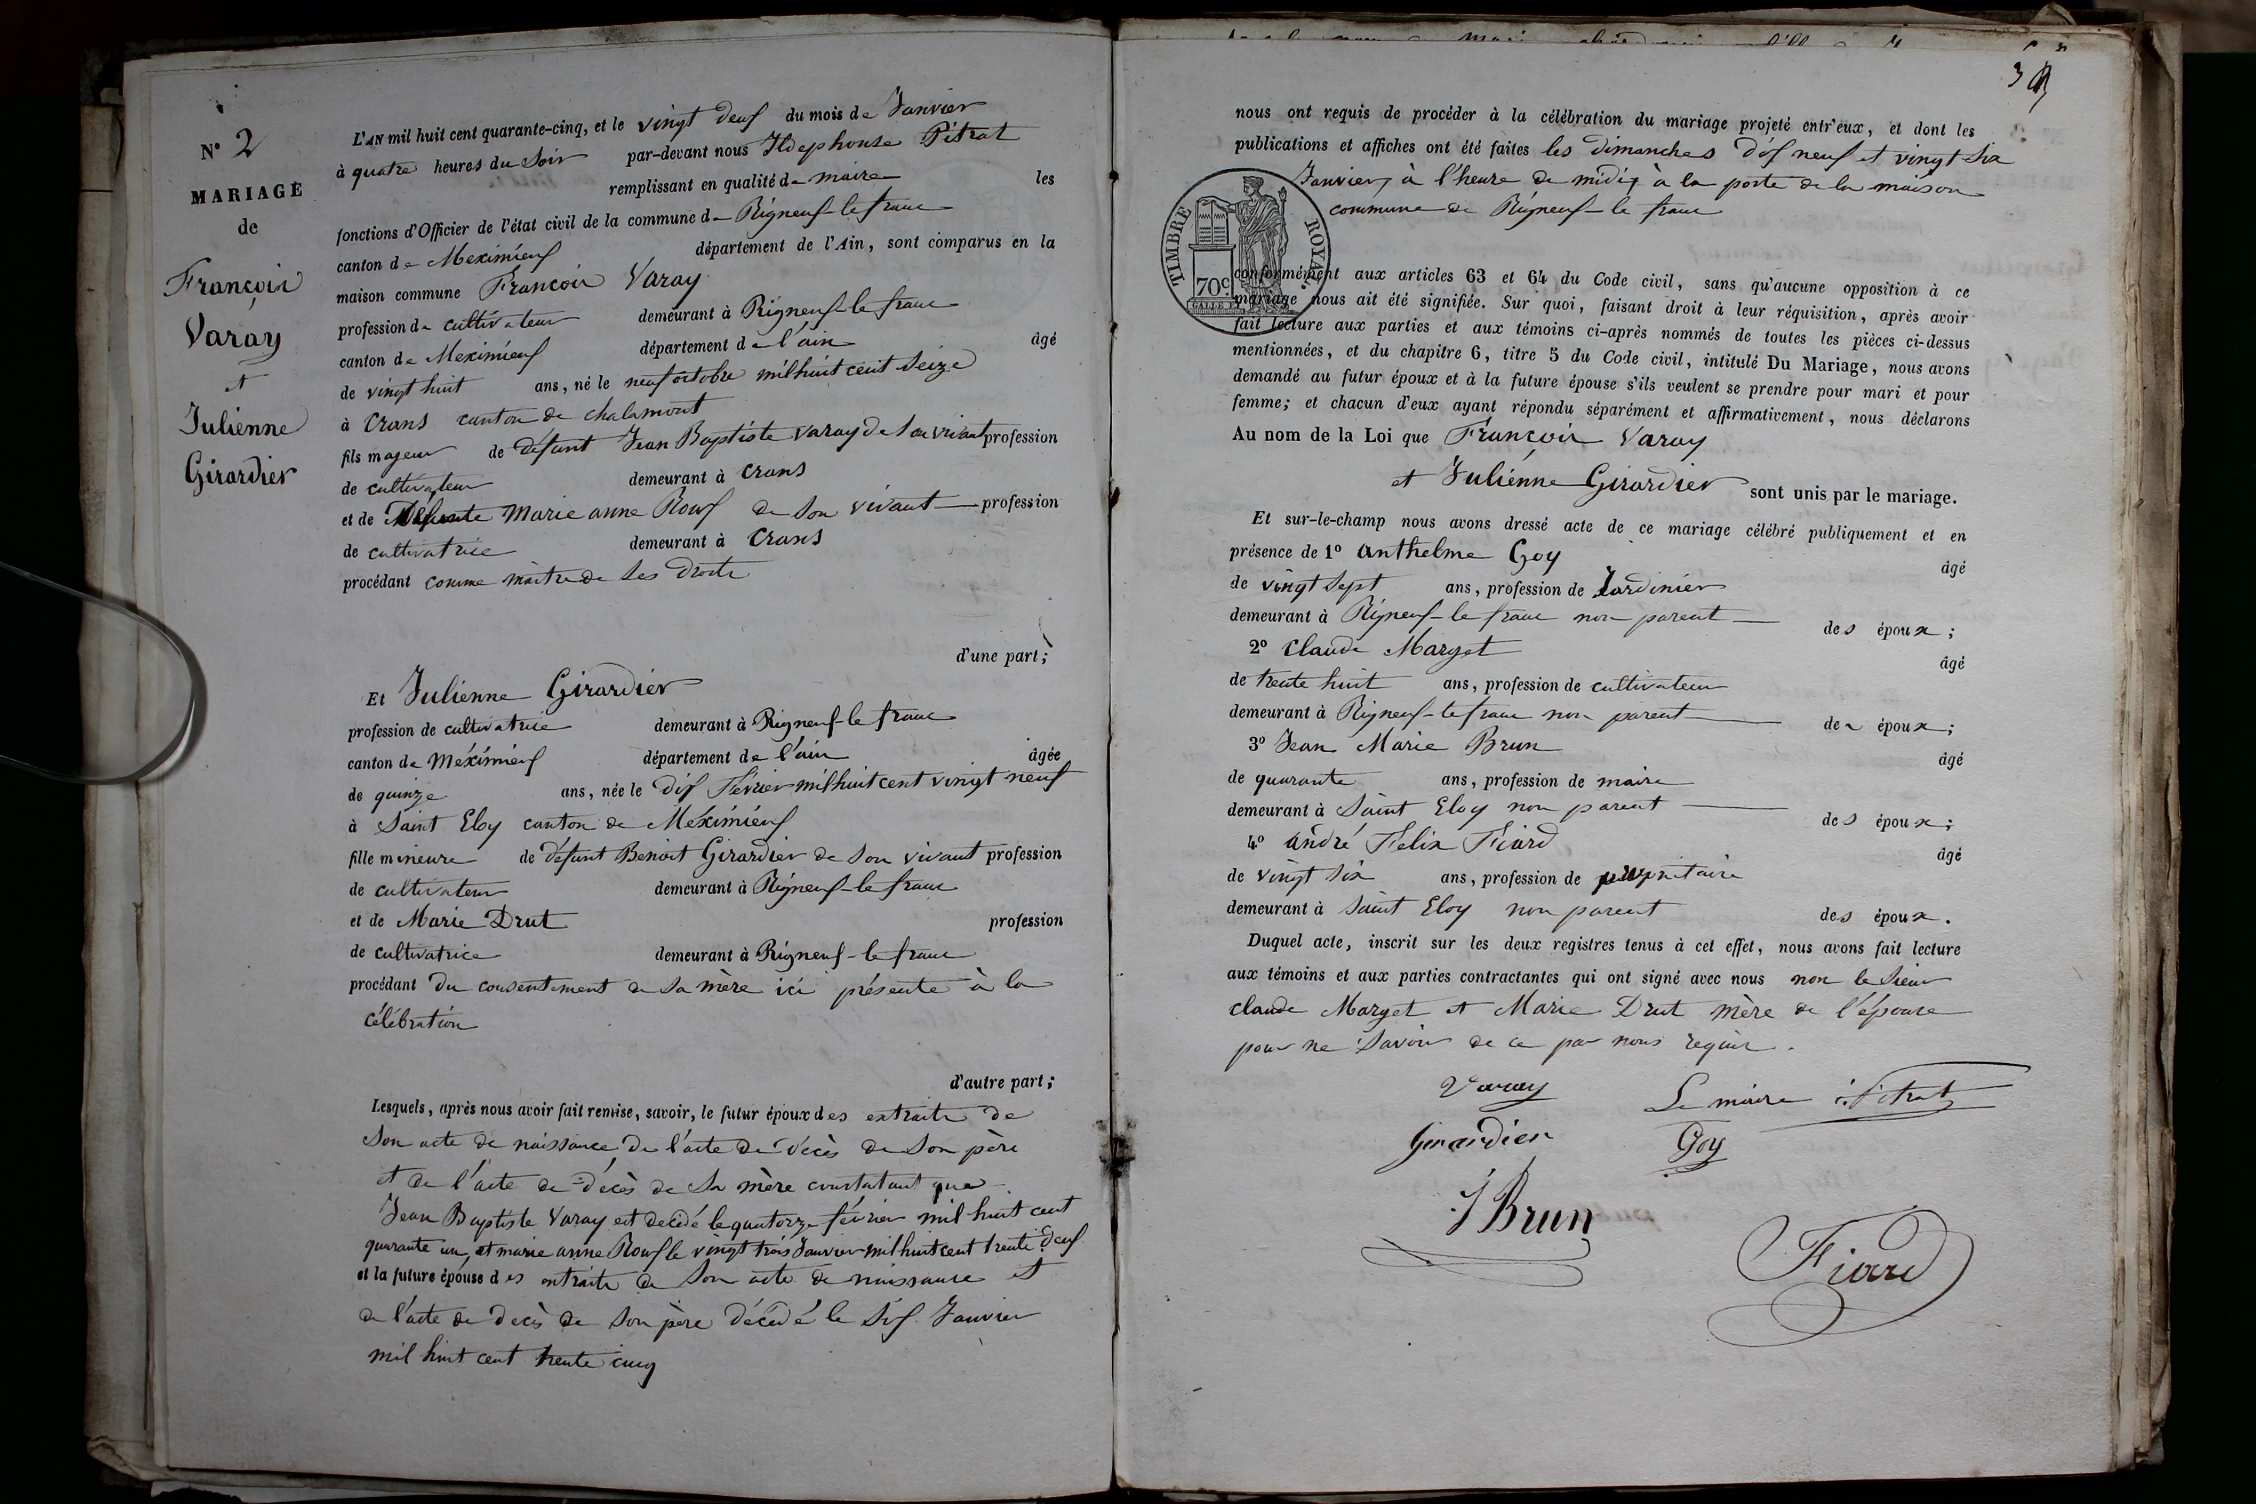 N° 2
MARIAGE
de
François
Varay
et
Julienne
Girardier
L'AN mil huit cent quarante-cinq, et le vingt deux du mois de Janvier
à quatre heures du Soir par-devant nous Ildephonse Pitrat
remplissant en qualité de maire les
fonctions d'Officier de l'état civil de la commune de Rigneux-le franc
canton de Meximieux département de l'Ain, sont comparus en la
maison commune François Varay
profession de cultivateur demeurant à Rigneux-le franc
canton de Meximieux département de l'ain âgé
de vingt huit ans, né le neuf octobre mil huit cent Seize
à Crans canton de chalamont
fils majeur de défunt Jean Baptiste Varay de Son vivant profession
de cultivateur demeurant à Crans
et de Défunte Marie anne Roux de Son vivant profession
de cultivatrice demeurant à Crans
procédant comme maitre de Ses droits
d'une part;
Et Julienne Girardier
profession de cultivatrice demeurant à Rigneux-le franc
canton de Méximieux département de l'ain âgée
de quinze ans, née le dix Février mil huit cent vingt neuf
à Saint Eloy canton de Méximieux
fille mineure de défunt Benoit Girardier de Son vivant profession
de cultivateur demeurant à Rigneux-le franc
et de Marie Drut profession
de cultivatrice demeurant à Rigneux-le franc
procédant du consentement de Sa mère ici présente à la
célébration
d'autre part;
Lesquels, après nous avoir fait remise, savoir, le futur époux des extraits de
Son acte de naissance de l'acte de décès de Son père
et de l'acte de décès de Sa mère constatant que
Jean Baptiste Varay est décédé le quatorze février mil huit cent
quarante un, et marie anne Roux le vingt trois Janvier mil huit cent trente deux
et la future épouse des extraits de Son acte de naissance et
de l'acte de décès de Son père décédé le Six Janvier
mil huit cent trente cinq
nous ont requis de procéder à la célébration du mariage projeté entr'eux, et dont les
publications et affiches ont été faites les dimanches dix neuf et vingt Six
Janvier, à l'heure de midi, à la porte de la maison
commune de Rigneux-le franc
TIMBRE ROYAL
70c
conformément aux articles 63 et 64 du Code civil, sans qu'aucune opposition à ce
mariage nous ait été signifiée. Sur quoi, faisant droit à leur réquisition, après avoir
fait lecture aux parties et aux témoins ci-après nommés de toutes les pièces ci-dessus
mentionnées, et du chapitre 6, titre 5 du Code civil, intitulé Du Mariage, nous avons
demandé au futur époux et à la future épouse s'ils veulent se prendre pour mari et pour
femme; et chacun d'eux ayant répondu séparément et affirmativement, nous déclarons
Au nom de la Loi que François Varay
et Julienne Girardier sont unis par le mariage.
Et sur-le-champ nous avons dressé acte de ce mariage célébré publiquement et en
présence de 1° Anthelme Goy âgé
de vingt Sept ans, profession de Jardinier
demeurant à Rigneux-le franc non parent des époux;
2° Claude Marget âgé
de trente huit ans, profession de cultivateur
demeurant à Rigneux-le franc non parent des époux;
3° Jean Marie Brun âgé
de quarante ans, profession de maire
demeurant à Saint Eloy non parent des époux;
4° André Felix Fiard âgé
de vingt Six ans, profession de propriétaire
demeurant à Saint Eloy non parent des époux.
Duquel acte, inscrit sur les deux registres tenus à cet effet, nous avons fait lecture
aux témoins et aux parties contractantes qui ont signé avec nous non le Sieur
Claude Marget et Marie Drut mère de l'épouse
pour ne Savoir de ce par nous requis.
Varay Le maire i. Pitrat
Girardier Goy
J Brun
Fiard